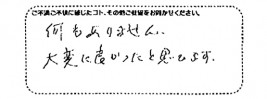 ご不満ご不快に感じたコト、その他ご意見をお聞かせください。
何もありません。
大変に良かったと思います。